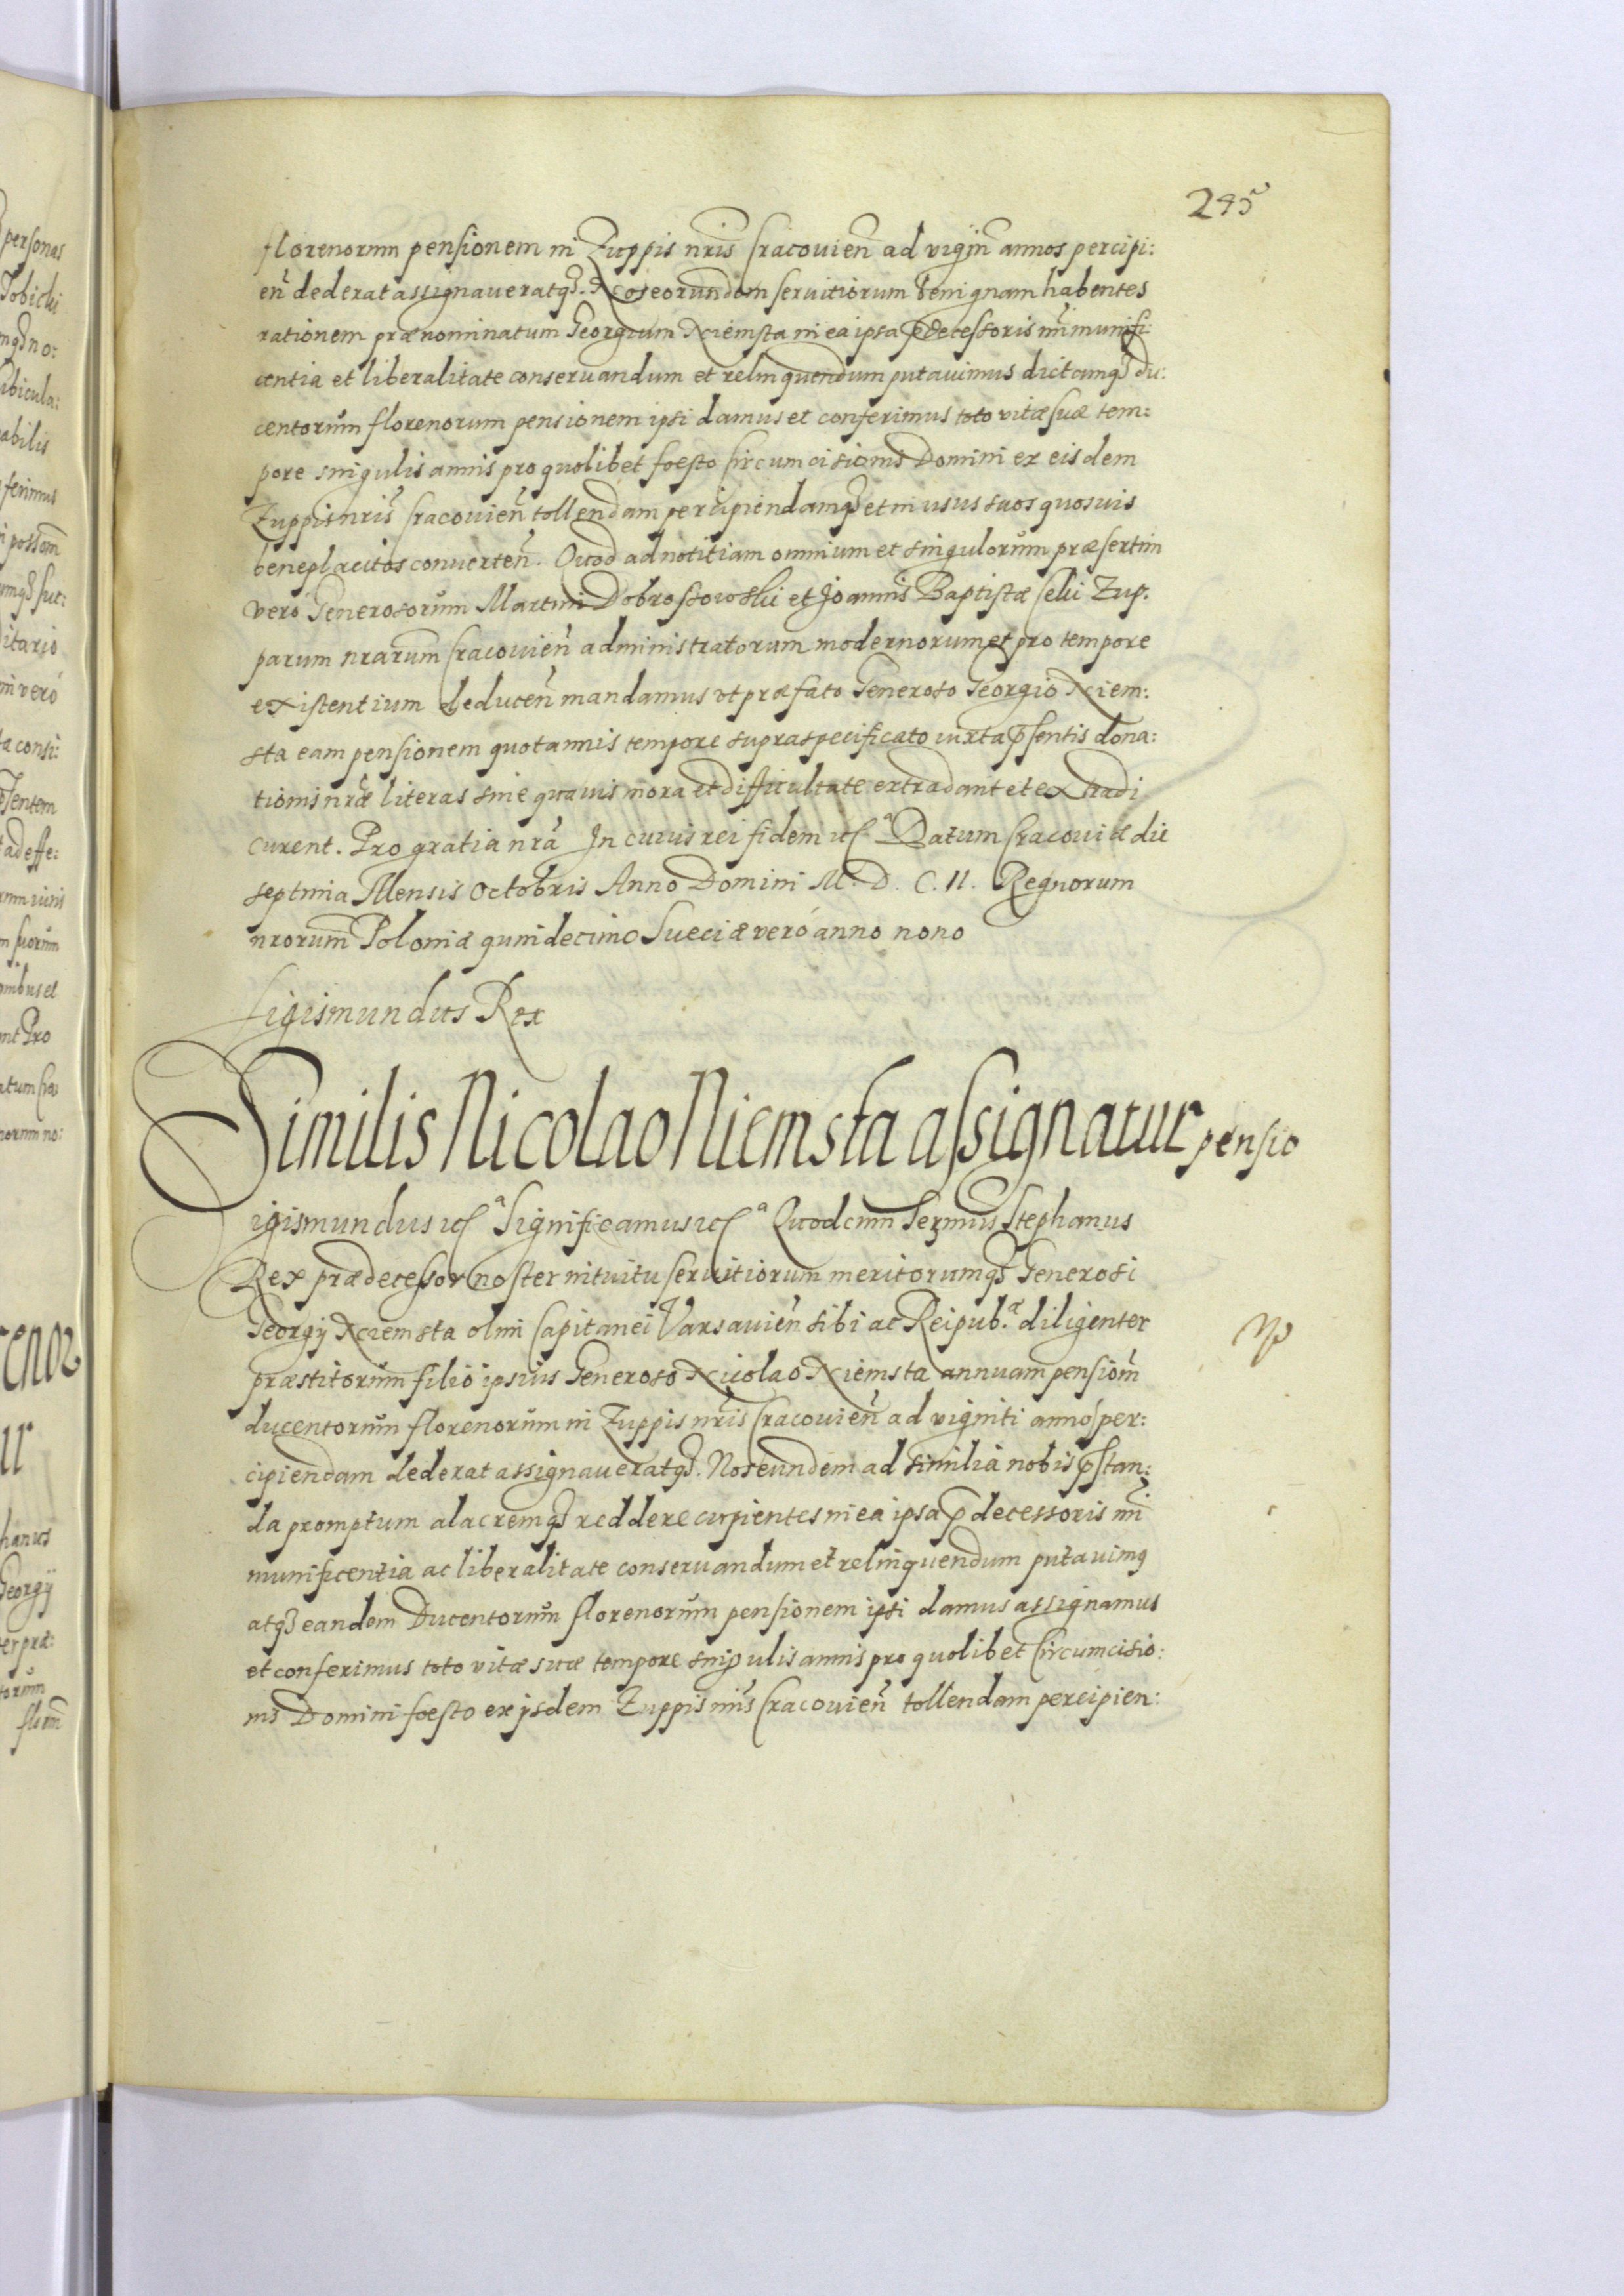 295
florenorum pensionem in Zuppis nr̃is Cracovien̄ ad vigin̄ annos percipi:
en̄ dederat assignaveratq₃. Nos eorundem servitiorum benignam habentes
rationem prænominatum Georgium Niemsta in ea ipsa p̄decessoris nr̃i munifi:
centia et liberalitate conservandum et relinquendum putavimus dictamq₃ du:
centorum florenorum pensionem ipsi damus et conferimus toto vitæ suæ tem:
pore singulis annis pro quolibet foesto Circumcisionis Domini ex eisdem
Zuppis nr̃is Cracovien̄ tollendam percipiendamq₃ et in usus suos quosvis
beneplacitos converten̄. Quod ad notitiam omnium et singulorum præsertim
vero Generosorum Martini Dobroszowski et Joannis Baptistæ Ceki Zup:
parum nrarum Cracovien̄ administratorum modernorum et pro tempore
existentium deducen̄ mandamus vt præfato Generoso Georgio Niem:
sta eam pensionem quotannis tempore supraspecificato iuxta p̄sentis dona:
tionis nr̃æ literas sine quavis mora et difficultate extradant et extradi
curent. Pro gratia nr̃a In cuius rei fidem etcᵃ Datum Cracoviæ die
septima Mensis Octobris Anno Domini M. D. C. II. Regnorum
nrorum Poloniæ quindecimo Sueciæ veró anno nono
Sigismundus Rex
Similis Nicolao Niemsta assignatur pensio
igismundus etcᵃ Significamus etcᵃ Quod cum Sermus Stephanus
Rex prædecessor noster intuitu servitiorum meritorumq₃ Generosi
Georgij Niemsta olim Capitanei Varsavien̄ sibi ac Reipub.æ diligenter
præstitorum filio ipsius Generoso Nicolao Niemsta annuam pensionem̄
ducentorum florenorum in Zuppis nr̃is Cracovien̄ ad viginti annos per:
cipiendam dederat assignaveratq₃. Nos eundem ad similia nobis p̄stan:
da promptum alacremq₃ reddere cupientes in ea ipsa p̄decessoris nr̃i
munificentia ac liberalitate conservandum et relinquendum putavimq
atq₃ eandem Ducentorum florenorum pensionem ipsi damus assignamus
et conferimus toto vitæ suæ tempore singulis annis pro quolibet Circumcisio:
nis Domini foesto ex ijsdem Zuppis nr̃is Cracovien̄ tollendam percipien: